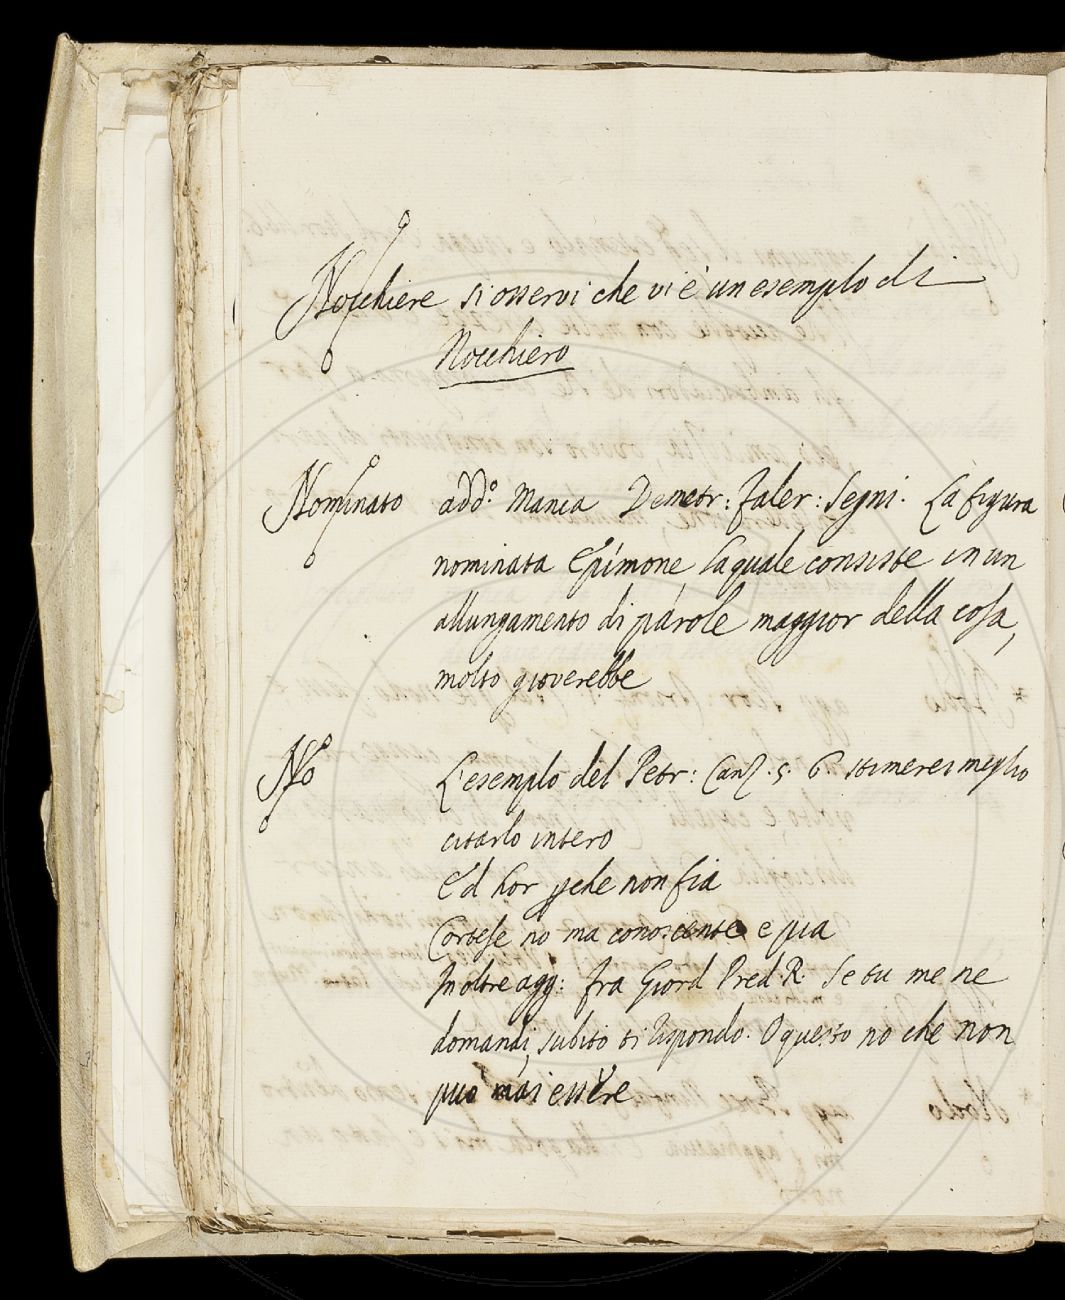 Nocchiere si osservi che vi è un esemplo di
Nocchiero
Nominato add.º Manca Demetr: faler: segni. La figura
nominata Epimone la quale consiste in un
allungamento di parole maggior della cosa,
molto gioverebbe
No L'esemplo del Petr: Canz. 5. 6 stimerei meglio
citarlo intero
Ed hor perche non fia
Cortese no ma conoscente e pia
Inoltre agg: fra Giord Pred. R. Se tu me ne
domandi, subito ti rispondo. O questo no che non
puo mai essere